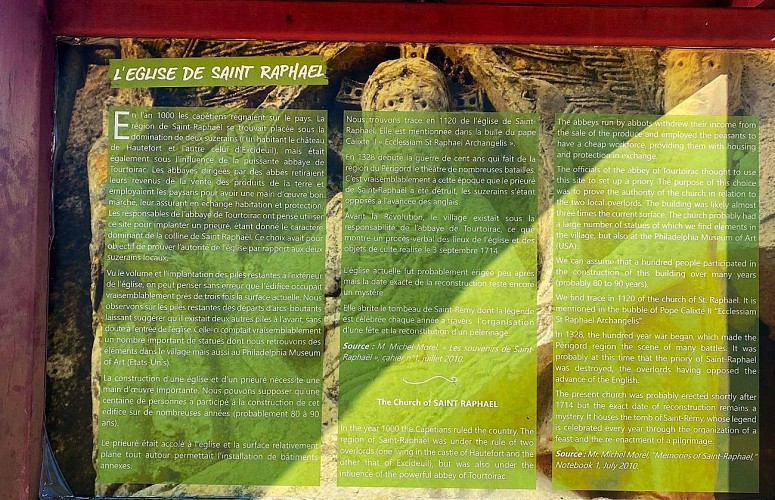 L'EGLISE DE SAINT RAPHAEL
En l'an 1000 les capétiens régnaient sur le pays. La
région de Saint-Raphaël se trouvait placée sous la
domination de deux suzerains (l'un habitant le château
de Hautefort et l'autre celui d'Excideuil), mais était
également sous l'influence de la puissante abbaye de
Tourtoirac. Les abbayes dirigées par des abbés retiraient
leurs revenus de la vente des produits de la terre et
employaient les paysans pour avoir une main d'œuvre bon
marché, leur assurant en échange habitation et protection.
Les responsables de l'abbaye de Tourtoirac ont pensé utiliser
ce site pour implanter un prieuré, étant donné le caractère
dominant de la colline de Saint-Raphaël. Ce choix avait pour
objectif de prouver l'autorité de l'église par rapport aux deux
suzerains locaux.
Vu le volume et l'implantation des piles restantes à l'extérieur
de l'église, on peut penser sans erreur que l'édifice occupait
vraisemblablement près de trois fois la surface actuelle. Nous
observons sur les piles restantes des départs d'arcs-boutants
laissant suggérer qu'il existait deux autres piles à l'avant, sans
doute à l'entrée de l'église. Celle-ci comptait vraisemblablement
un nombre important de statues dont nous retrouvons des
éléments dans le village mais aussi au Philadelphia Museum
of Art (Etats-Unis).
La construction d'une église et d'un prieuré nécessite une
main d'œuvre importante. Nous pouvons supposer qu'une
centaine de personnes a participé à la construction de cet
édifice sur de nombreuses années (probablement 80 à 90
ans).
Le prieuré était accolé à l'église et la surface relativement
plane tout autour permettait l'installation de bâtiments
annexes.
Nous trouvons trace en 1120 de l'église de Saint-
Raphaël. Elle est mentionnée dans la bulle du pape
Calixte II « Ecclesiam St Raphael Archangelis ».
En 1328 débute la guerre de cent ans qui fait de la
région du Périgord le théâtre de nombreuses batailles.
C'est vraisemblablement à cette époque que le prieuré
de Saint-Raphaël a été détruit, les suzerains s'étant
opposés à l'avancée des anglais.
Avant la Révolution, le village existait sous la
responsabilité de l'abbaye de Tourtoirac, ce que
montre un procès-verbal des lieux de l'église et des
objets de culte réalisé le 3 septembre 1714.
L'église actuelle fut probablement érigée peu après
mais la date exacte de la reconstruction reste encore
un mystère.
Elle abrite le tombeau de Saint-Rémy dont la légende
est célébrée chaque année à travers l'organisation
d'une fête et la reconstitution d'un pèlerinage.
Source : M. Michel Morel, « Les souvenirs de Saint-
Raphaël », cahier n°1, juillet 2010.
The Church of SAINT-RAPHAEL
In the year 1000 the Capetians ruled the country. The
region of Saint-Raphaël was under the rule of two
overlords (one living in the castle of Hautefort and the
other that of Excideuil), but was also under the
influence of the powerful abbey of Tourtoirac.
The abbeys run by abbots withdrew their income from
the sale of the produce and employed the peasants to
have a cheap workforce, providing them with housing
and protection in exchange.
The officials of the abbey of Tourtoirac thought to use
this site to set up a priory. The purpose of this choice
was to prove the authority of the church in relation to
the two local overlords. The building was likely almost
three times the current surface. The church probably had
a large number of statues of which we find elements in
the village, but also at the Philadelphia Museum of Art
(USA).
We can assume that a hundred people participated in
the construction of this building over many years
(probably 80 to 90 years).
We find trace in 1120 of the church of St. Raphaël. It is
mentioned in the bubble of Pope Calixte II "Ecclesiam
St Raphael Archangelis".
In 1328, the hundred-year war began, which made the
Périgord region the scene of many battles. It was
probably at this time that the priory of Saint-Raphaël
was destroyed, the overlords having opposed the
advance of the English.
The present church was probably erected shortly after
1714 but the exact date of reconstruction remains a
mystery. It houses the tomb of Saint-Rémy, whose legend
is celebrated every year through the organization of a
feast and the re-enactment of a pilgrimage.
Source : Mr. Michel Morel, "Memories of Saint-Raphaël",
Notebook 1, July 2010.